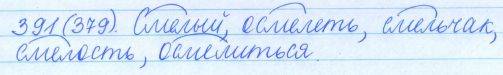 391(379). Смелый, осмелеть, смельчак,
смелость, осмелиться.